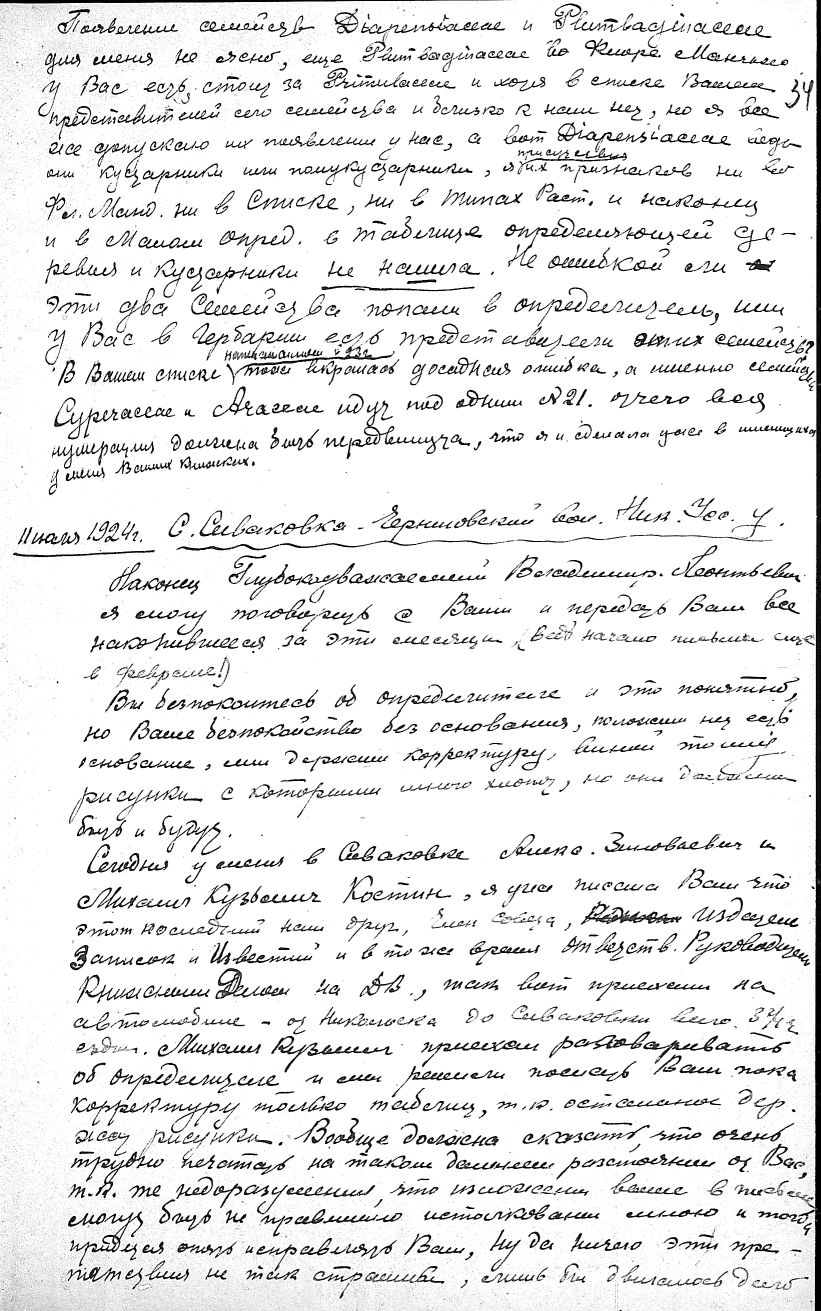 Появление семейств Diapensiaceae и Plumbaginaceae
для меня не ясно, еще Plumbaginaceae во Флоре Маньчж.
у Вас есть, стоит за Primulaceae и хотя в списке Вашем
34
представителей сего семейства и близко к нам нет, но я все
же допускаю их появление у нас, а вот Diapensiaceae ведь
они кустарники или полукустарники,
присутствия
этих признаков ни во
Фл. Манд. ни в Списке, ни в Типах Раст. и наконец
и в Малом опред. в таблице определяющей де-
ревья и кустарники не нашла. Не ошибкой ли
эти два Семейства попали в определитель, или
у Вас в Гербарии есть представители этих семейств?
напечатанном в 23 г.
В Вашем списке тоже вкралась досадная ошибка, а именно семейства
Cyperaceae и Araceae идут под одним № 21. отчего вся
нумерация должна быть передвинута, что я и сделала уже в имеющихся
у меня Ваших
11 июля 1924 г. С. Сиваковка - Черниговской вол. Ник. Усс. у.
Наконец Глубокоуважаемый Владимир Леонтьевич
я могу поговорить с Вами и передать Вам все
накопившееся за эти месяцы (ведь начало письма еще
в феврале!)
Вы безпокоитесь об определителе и это понятно,
но Ваше безпокойство без основания, положим нет есть
основание, мы держим корректуру, виной тому
рисунки с которыми много хлопот, но они должны
быть и будут.
Сегодня у меня в Сиваковке Алекс. Зиновьевич и
Михаил Кузьмич Костин, я уже писала Вам что
этот последний наш друг, член совета, издатель
Записок и Известий и в то же время ответств. Руководитель
Книжным Делом на ДВ., так вот приехали на
автомобиле - от Никольска до Сиваковки всего 3 1/2 ч
езды. Михаил Кузьмич приехал разговаривать
об определителе и мы решили послать Вам пока
корректуру только таблиц, т.к. остальное дер-
жат рисунки. Вообще должна сказать, что очень
трудно печатать на таком дальнем разстоянии от Вас,
т.к. те недоразумения, что изложены выше в письме
могут быть не правильно истолкованы мною и тогда
придется опять исправлять Вам, ну да ничего эти пре-
пятствия не так страшны, лишь бы двигалось дело